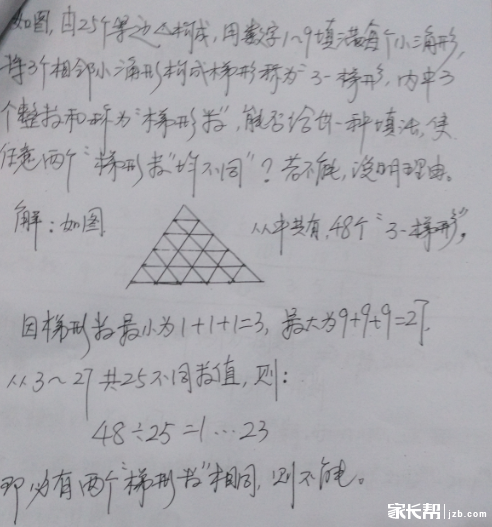 如图,由25个单边△构成,用数字1~9填满每个小三角形,
将3个相邻小三角形构成梯形称为"3-梯形",内中3
个整数和称为"梯形数",能否给出一种填法,使
任意两个"梯形数"均不同"?若不能,说明理由。
解:如图
从中共有48个"3-梯形"。
因梯形数最小为1+1+1=3,最大为9+9+9=27.
从3~27共25不同数值,则:
48÷25=1…23
即必有两个"梯形数"相同,则不能。
家长帮 jzb.com